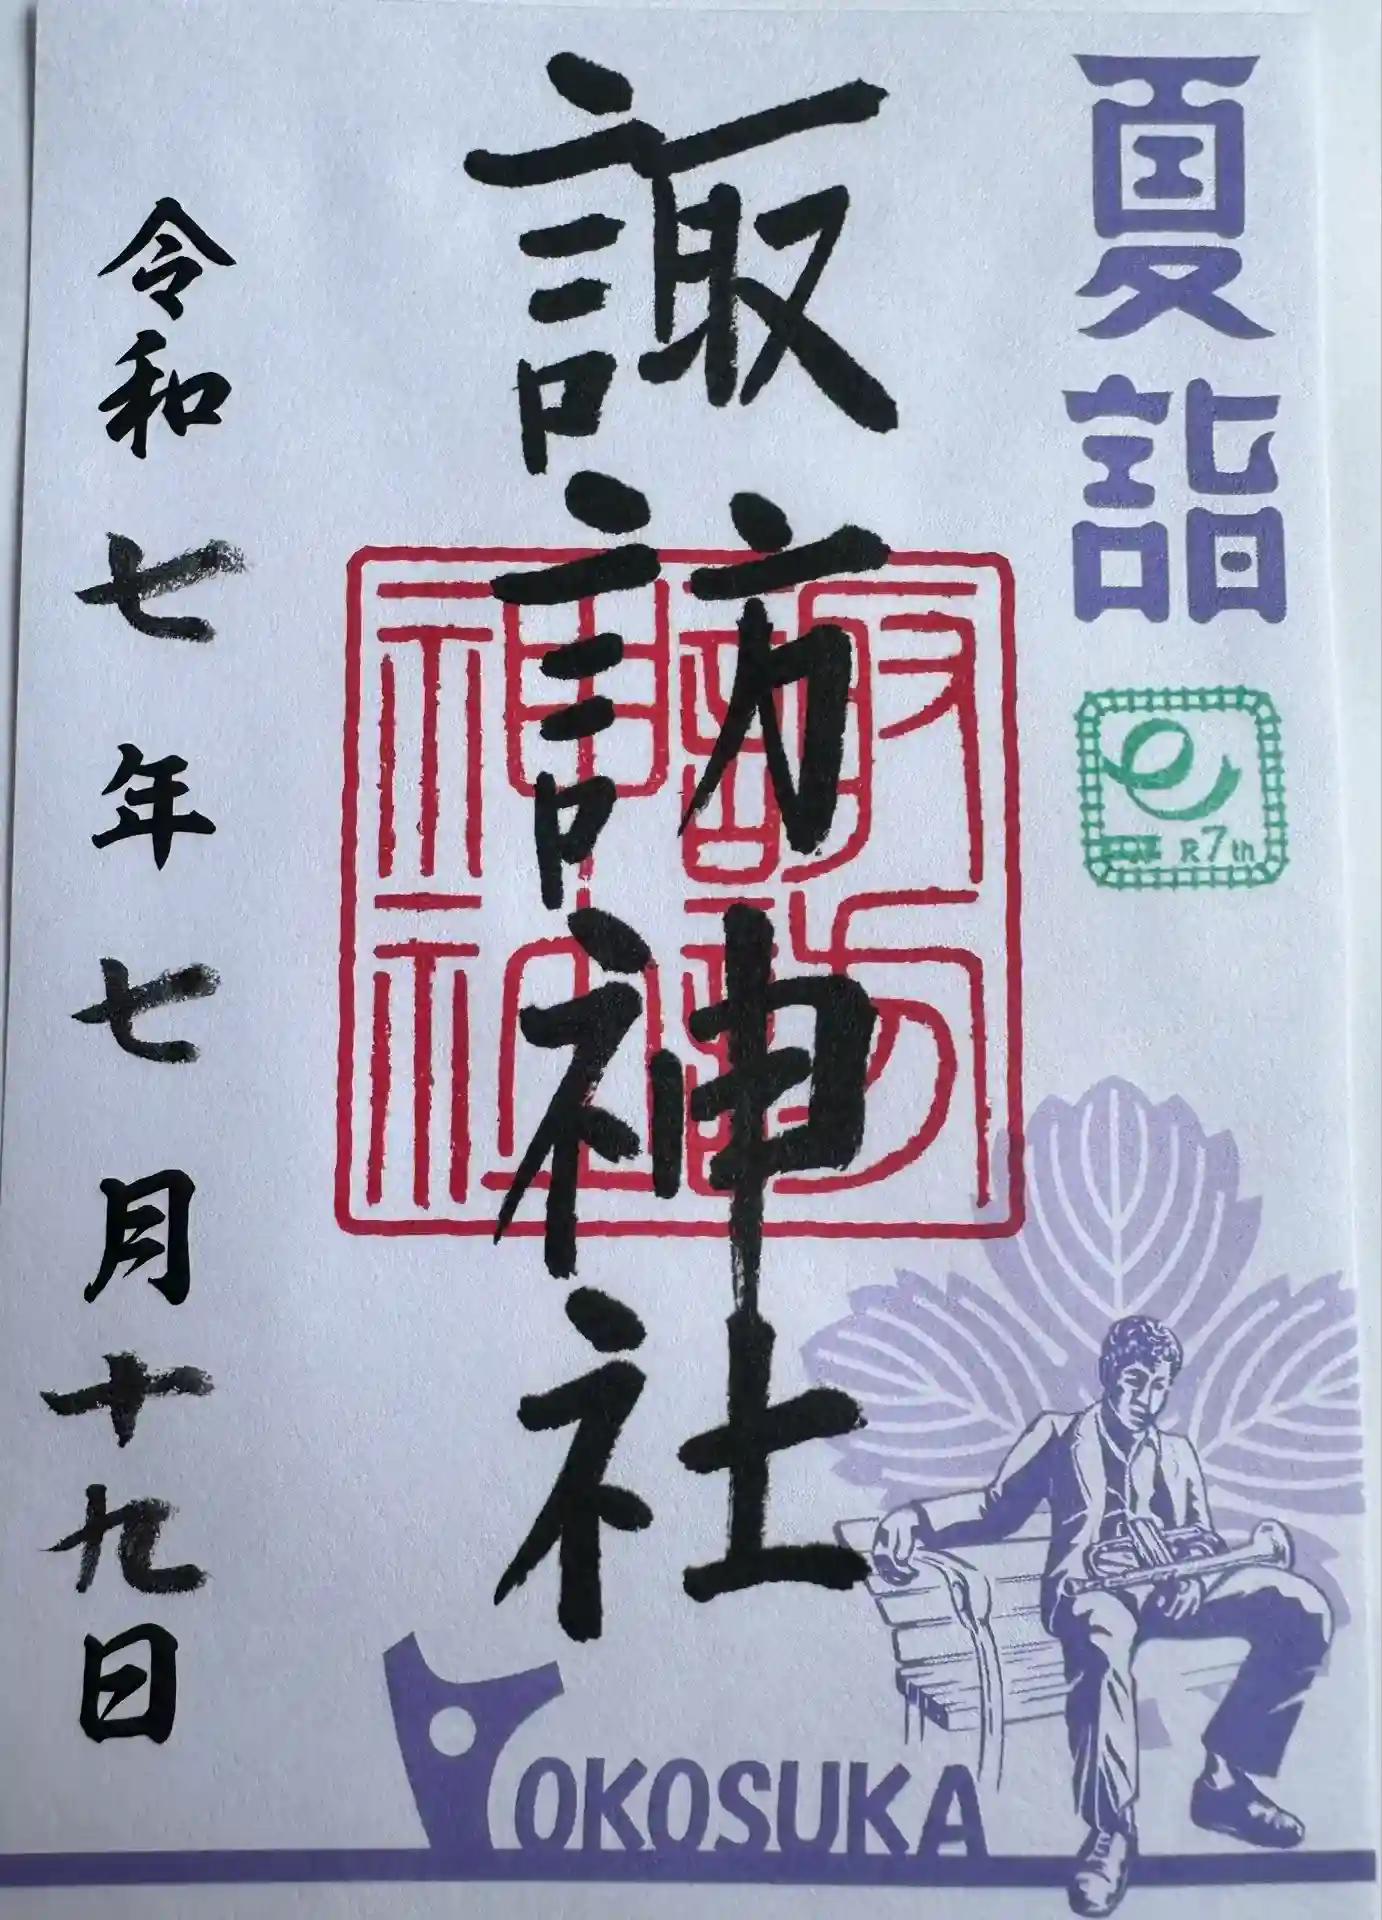 夏詣
R7th
諏訪神社
諏訪
神社
令和七年七月十九日
YOKOSUKA